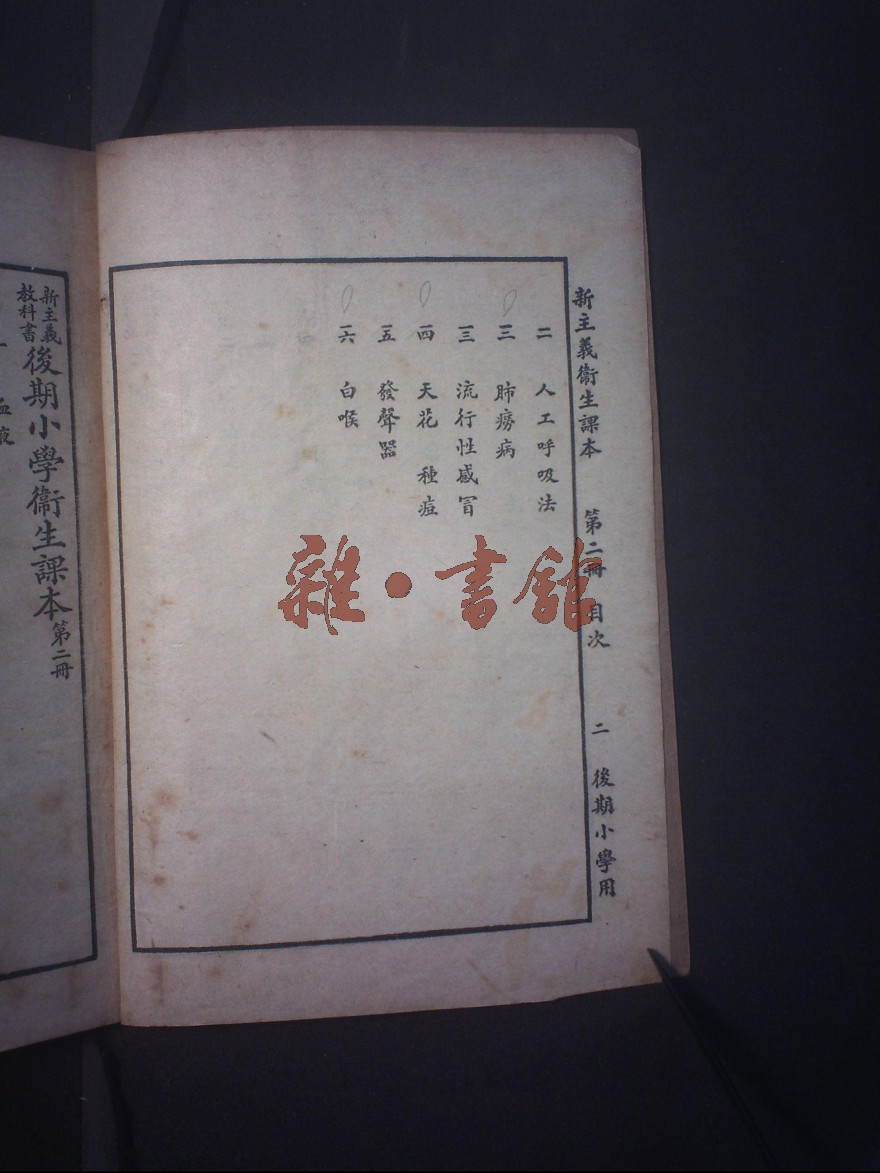 新主義衞生課本 第二冊 目次 二 後期小學用
一一 人工呼吸法
一二 肺癆病
一三 流行性感冒
一四 天花 種痘
一五 發聲器
一六 白喉
新主義
教科書
後期小學衞生課本 第二冊
雜·書館